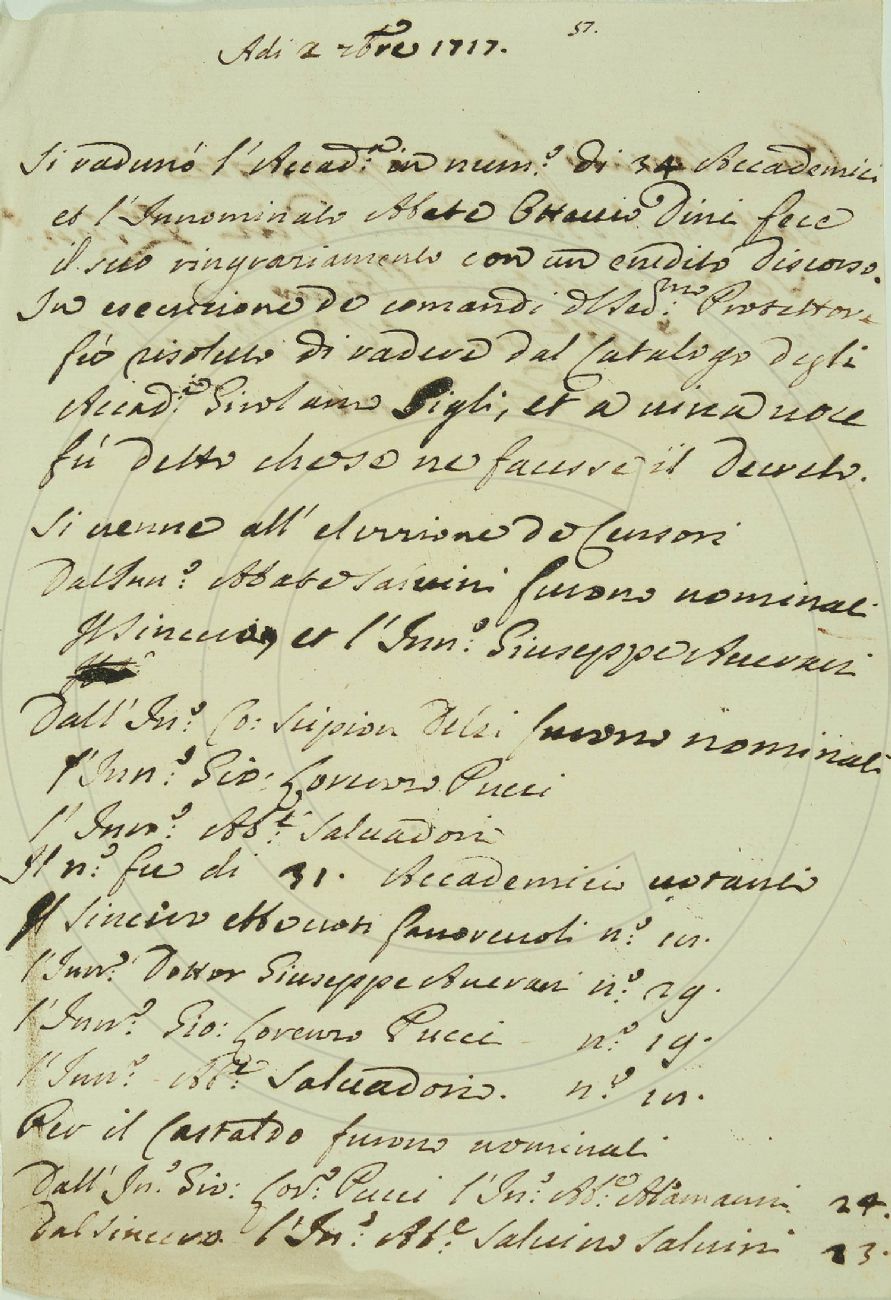 57.
Adi 2 7bre 1717.
Si radunò l'Accad.a in num.o di 34 Accademici
et l'Innominato Abate Ottavio Dini fece
il suo ringraziamento con un erudito discorso.
In esecuzione de comandi del Ser.mo Protettore
fù risoluto di radere dal Catalogo degli
Accad.ci Girolamo Gigli, et a viva voce
fù detto che se ne facesse il decreto.
Si venne all'elezzione de Censori
Dall'Inn.o Abate Salvini furono nominati
Il Sincero, et l'Inn.o Giuseppe Averani
Dall'In.o Co: Scipion Delci furono nominati
l'Inn.o Gio: Lorenzo Pucci
l'Inno.o Ab.e Salvadori
Il n.o fu di 31. Accademici votanti
Il Sincero ebbe voti favorevoli n.o
l'Inno.o Dottor Giuseppe Averani n.o 29.
l'Inno.o Gio: Lorenzo Pucci n.o 19.
l'Inn.o Ab.e Salvadori. n.o
Per il Castaldo furono nominati
Dall'In.o Gio: Lor.o Pucci l'In.o Ab.e Alamanni 24.
Dal Sincero l'In.o Ab.e Salvino Salvini 23.